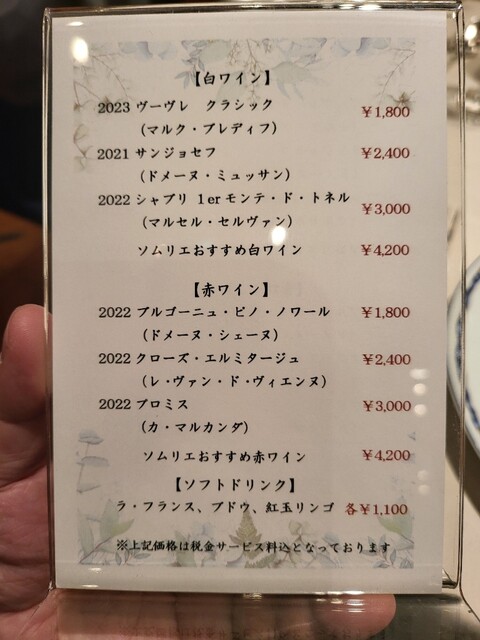 【白ワイン】
2023 ヴーヴレ　クラシック ￥1,800
（マルク・ブレディフ）
2021 サンジョセフ ￥2,400
（ドメーヌ・ミュッサン）
2022 シャブリ 1erモンテ・ド・トネル ￥3,000
（マルセル・セルヴァン）
ソムリエおすすめ白ワイン ￥4,200
【赤ワイン】
2022 ブルゴーニュ・ピノ・ノワール ￥1,800
（ドメーヌ・シェーヌ）
2022 クローズ・エルミタージュ ￥2,400
（レ・ヴァン・ド・ヴィエンヌ）
2022 プロミス ￥3,000
（カ・マルカンダ）
ソムリエおすすめ赤ワイン ￥4,200
【ソフトドリンク】
ラ・フランス、ブドウ、紅玉リンゴ 各￥1,100
※上記価格は税金サービス料込となっております